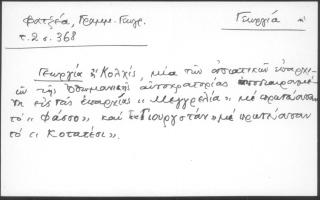 Φατζέα, Γραμμ. Γεωγρ.
Γεωργία
τ. 2 σ. 368
Γεωργία ἢ Κολχίς, μία τῶν ἀσιατικῶν ἐπαρχι-
ῶν τῆς Ὀθωμανικῆς αὐτοκρατορίας
εἰς τὰς ἐπαρχίας "Μεγγρελία" μὲ πρωτεύουσαν
τὸ "Φάσσο" καὶ "Γιουργιστάν" μὲ πρωτεύουσαν
τὸ "Κοτατέσι".